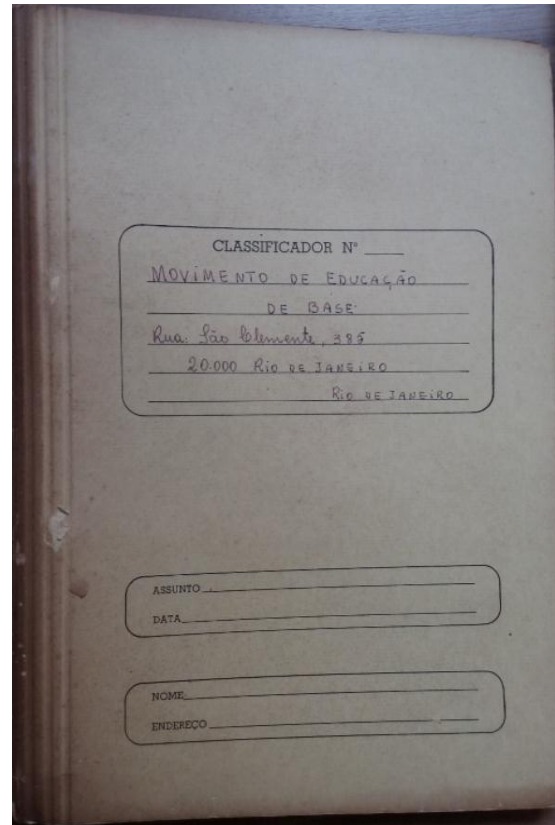 CLASSIFICADOR Nº
MOVIMENTO DE EDUCAÇÃO
DE BASE
Rua: São Clemente, 385
20.000 RIO DE JANEIRO
RIO DE JANEIRO
ASSUNTO
DATA
NOME
ENDEREÇO